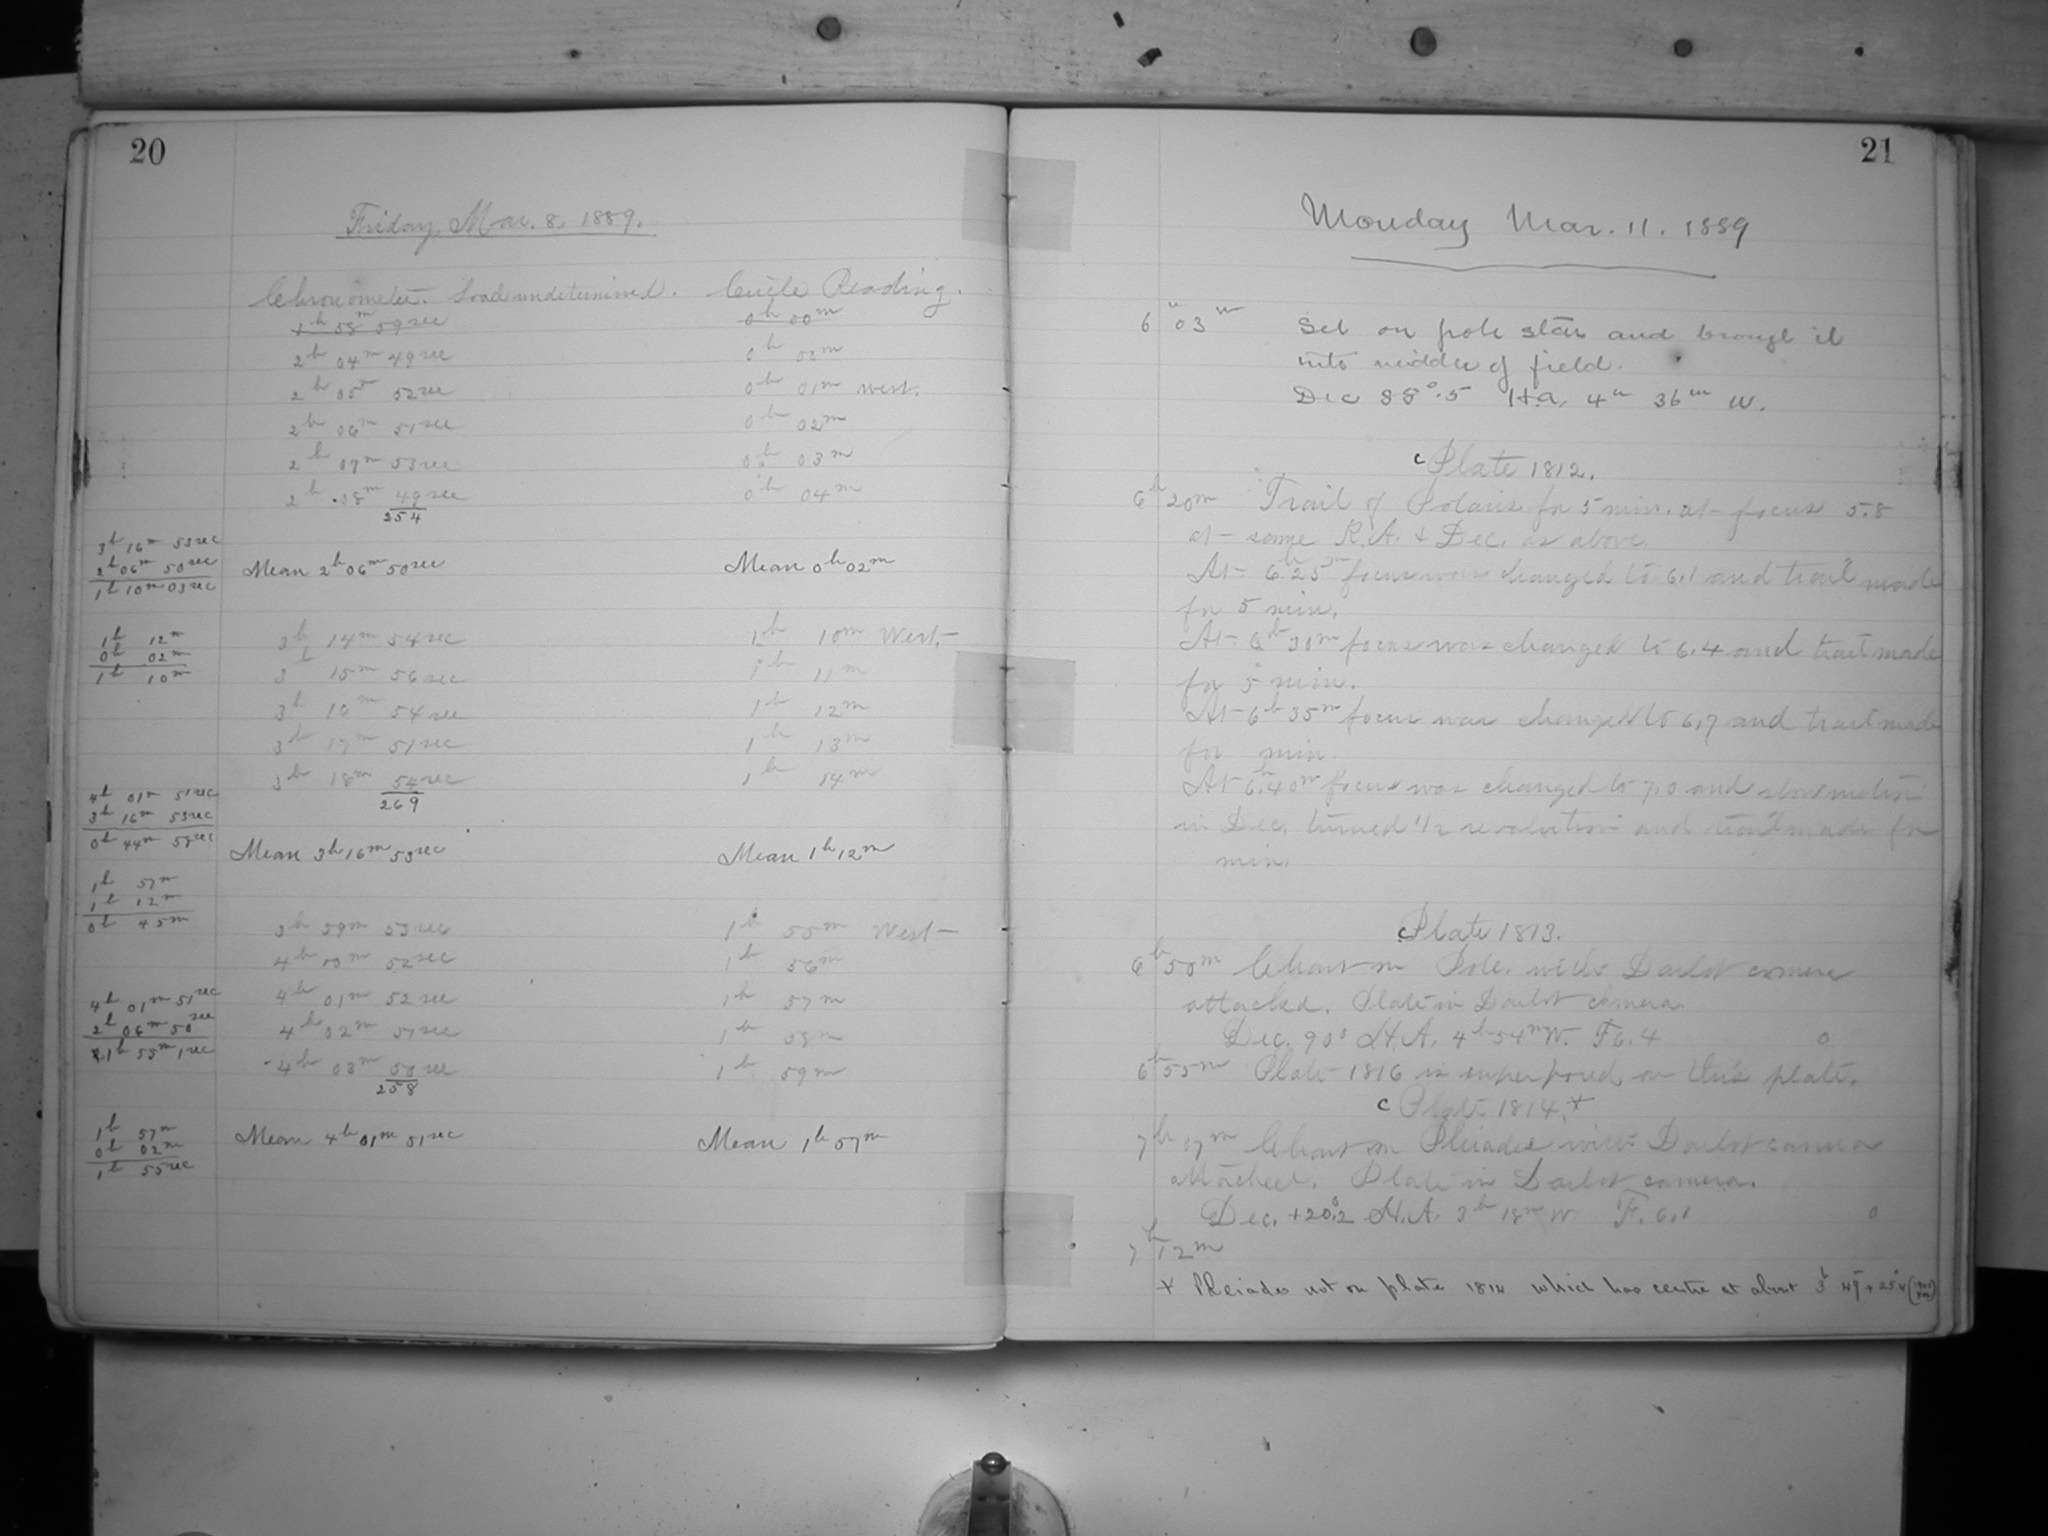 20
Friday, Mar. 8, 1889.
Chronometer. Load undetermined. Circle Reading.
1h 58m 59sec 0h 00m
2h 04m 49sec 0h 00m
2h 05m 52sec 0h 01m West.
2h 06m 51sec 0h 02m
2h 07m 53sec 0h 03m
2h 08m 49sec 0h 04m
254
3h 16m 53sec
2h 06m 50sec
1h 10m 03sec
Mean 2h 06m 50sec Mean 0h 02m
1h 12m
0h 02m
1h 10m
3h 14m 54sec 1h 10m West.
3h 15m 56sec 1h 11m
3h 16m 54sec 1h 12m
3h 17m 51sec 1h 13m
3h 18m 54sec 1h 14m
269
4h 01m 51sec
3h 16m 53sec
0h 44m 58sec
Mean 3h 16m 53sec Mean 1h 12m
1h 57m
1h 12m
0h 45m
3h 59m 53sec 1h 55m West
4h 00m 52sec 1h 56m
4h 01m 52sec 1h 57m
4h 02m 51sec 1h 58m
4h 03m 50sec 1h 59m
258
4h 01m 51sec
2h 06m 50sec
1h 55m 1sec
Mean 4h 01m 51sec Mean 1h 57m
1h 57m
0h 02m
1h 55sec
21
Monday Mar. 11. 1889
6h 03m Set on pole star and brough it
into middle of field.
Dec 88°.5 H.a. 4h 36m W.
c Plate 1812.
6h 20m Trail of Polaris for 5 min. at focus 5.8
at same R.A. & Dec. as above.
At 6h 25m focus was changed to 6.1 and trail made
for 5 min.
At 6h 30m focus was changed to 6.4 and trail made
for 5 min.
At 6h 35m focus was changed to 6.7 and trail made
for min.
At 6h 40m focus was changed to 7.0 and slow motion
in Dec. turned 1/2 revolution and trail made for
min.
c Plate 1813.
6h 50m Chart on Pole. with Darlot camera
attached. Plate in Darlot camera.
Dec. 90° H.A. 4h 54m W. F 6.4 0
6h 55m Plate 1816 is superposed on this plate.
c Plate 1814. x
7h 07m Chart on Pleiades with Darlot camera
attached. Plate in Darlot camera.
Dec. +20°.2 H.A. 3h 18m W. F. 6.1 0
7h 12m
x Pleiades not on plate 1814 which has centre at about 3h 49m + 25°.4